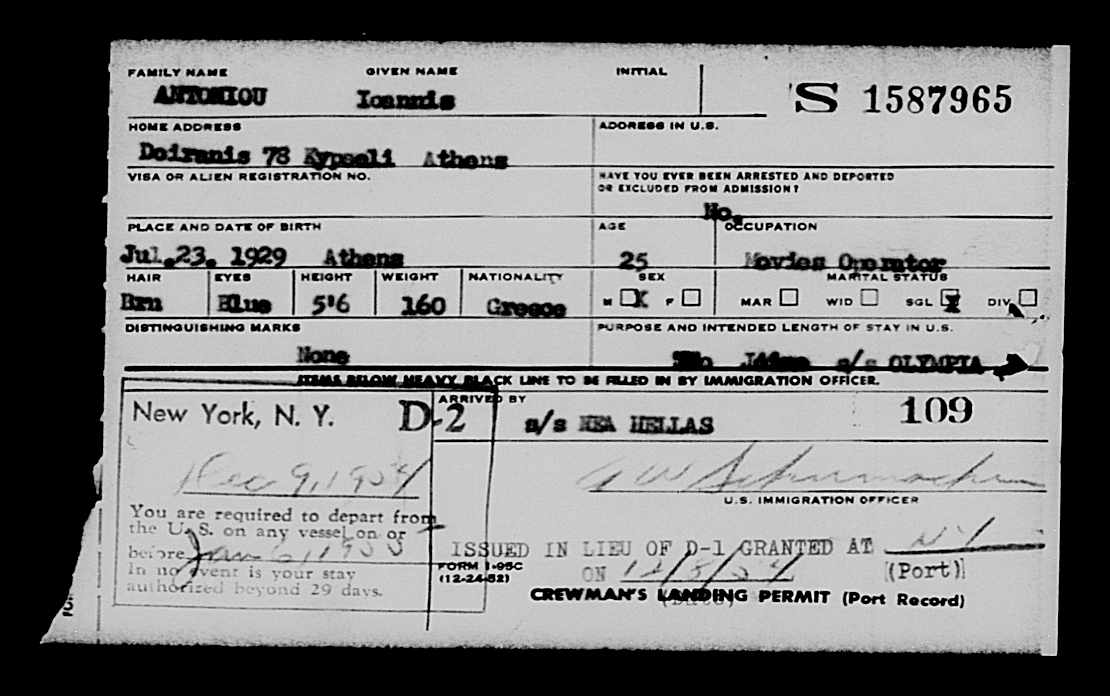 FAMILY NAME GIVEN NAME INITIAL
S 1587965
ANTONIOU Ioannis
HOME ADDRESS ADDRESS IN U.S.
Doiranis 78 Kypseli Athens
VISA OR ALIEN REGISTRATION NO. HAVE YOU EVER BEEN ARRESTED AND DEPORTED
OR EXCLUDED FROM ADMISSION?
No.
PLACE AND DATE OF BIRTH AGE OCCUPATION
Jul.23. 1929 Athens 25 Movies Operator
HAIR EYES HEIGHT WEIGHT NATIONALITY SEX MARITAL STATUS
Brn Blue 5'6 160 Greece M X F MAR WID SGL X DIV
DISTINGUISHING MARKS PURPOSE AND INTENDED LENGTH OF STAY IN U.S.
None s/s OLYMPIA
ITEMS BELOW HEAVY BLACK LINE TO BE FILLED IN BY IMMIGRATION OFFICER.
New York, N. Y. D-2 ARRIVED BY
s/s NEA HELLAS 109
Dec 9, 1954
U.S. IMMIGRATION OFFICER
You are required to depart from
the U.S. on any vessel on or
before Jan 6, 1955
In no event is your stay
authorized beyond 29 days.
ISSUED IN LIEU OF D-1 GRANTED AT NY
ON 12/8/54 (Port)
FORM I-95C
(12-24-52)
CREWMAN'S LANDING PERMIT (Port Record)
(Date)